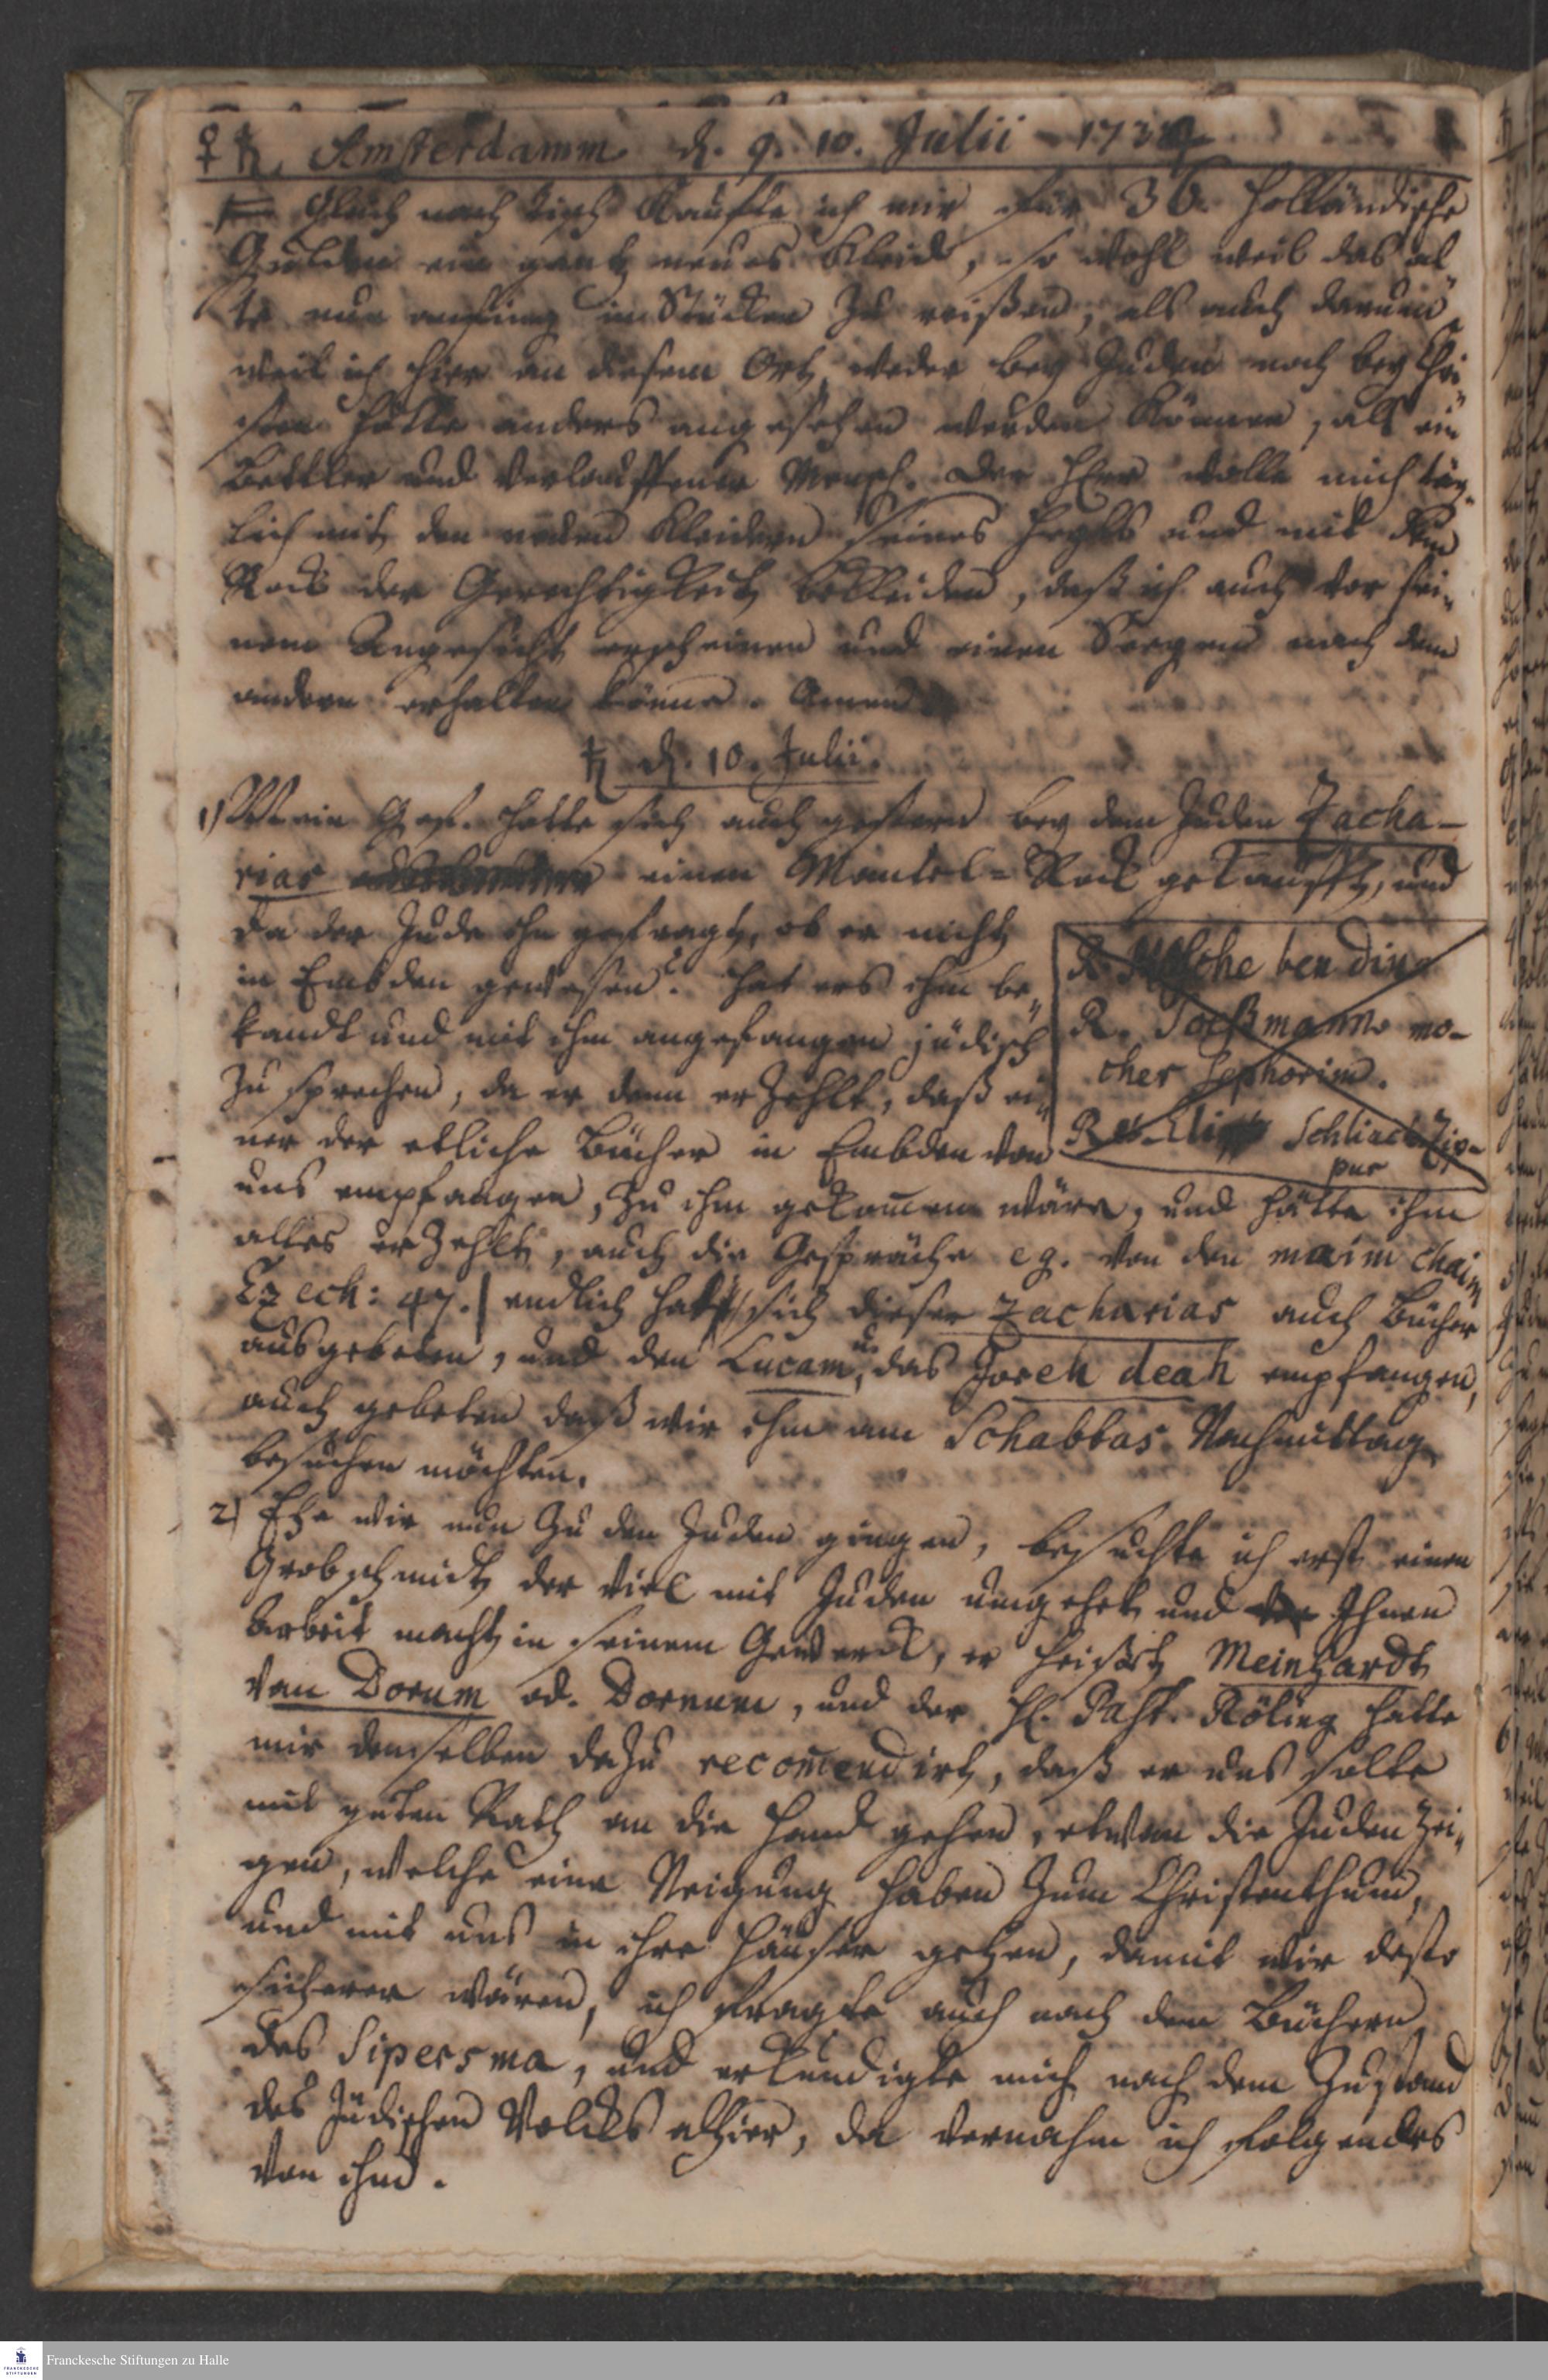 ♀ ♄ Amsterdamm d. 9. 10. Julii 1734
Gleich nach tisch kauffte ich mir für 36. holländische
Gulden ein gantz neues Kleid, so wohl weil das al-
te nun anfing in Stücken zu reißen, als auch darum
weil ich hier an diesem Ort weder bey Juden noch bey Chri-
sten hätte anders angesehen werden können, als ein
Bettler und verlauffener Mensch. Der Herr wolle mich täg-
lich mit den Kleidern seines Heyls und mit dem
Rock der Gerechtigkeit bekleiden, daß ich auch vor sei-
nem Angesicht erscheinen und einen Seegen nach dem
andern erhalten könne. Amen
♄ d. 10. Julii.
1) Mein Gef. hatte sich auch gestern bey dem Juden Zacha-
rias einen Mantel-Rock gekaufft, und
da der Jude ihn gefragt, ob er nicht
in Embden gewesen? hat ers ihm be-
kandt und mit ihm angefangen jüdisch
zu sprechen, da er denn erzehlt, daß ei-
ner der etliche Bücher in Embden von
R. Mosche ben dina
R. mo-
cher Sephorim.
R. Schliach Zip-
pur
uns empfangen, zu ihm gekom̅en wäre, und hätte ihm
alles erzehlt, auch die Gespräche eg. von den maim chaim
Ezech: 47. endlich hat sich dieser Zacharias auch Bücher
ausgebeten, und den Lucam, u. das Joreh deah empfangen,
auch gebeten daß wir ihn am Schabbas Nachmittag
besuchen möchten.
2) Ehe wir nun zu den Juden gingen, besuchte ich erst einen
Grobschmidt der viel mit Juden umgehet und Ihnen
Arbeit macht in seinem Gewerck, er heißet Meinhardt
van Dorum od. Dornum, und der H. Past. Röling hatte
mir denselben dazu recom̅endirt, daß er uns solte
mit guten Rath an die Hand gehen, etwan die Juden zei-
gen, welche eine Neigung haben zum Christenthum,
und mit uns in ihre Häuser gehen, damit wir desto
sicherer wären, ich fragte auch nach den Büchern
des Sipersma, und erkundigte mich nach dem Zustand
des Jüdischen Volcks alhier, da vernahm ich folgendes
von ihm.
FRANCKESCHE
STIFTUNGEN
Franckesche Stiftungen zu Halle